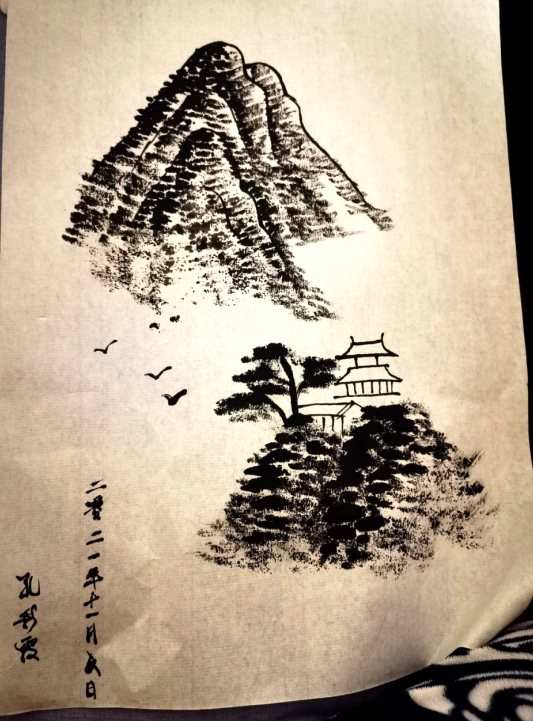 二零二一年十一月日
孔霞